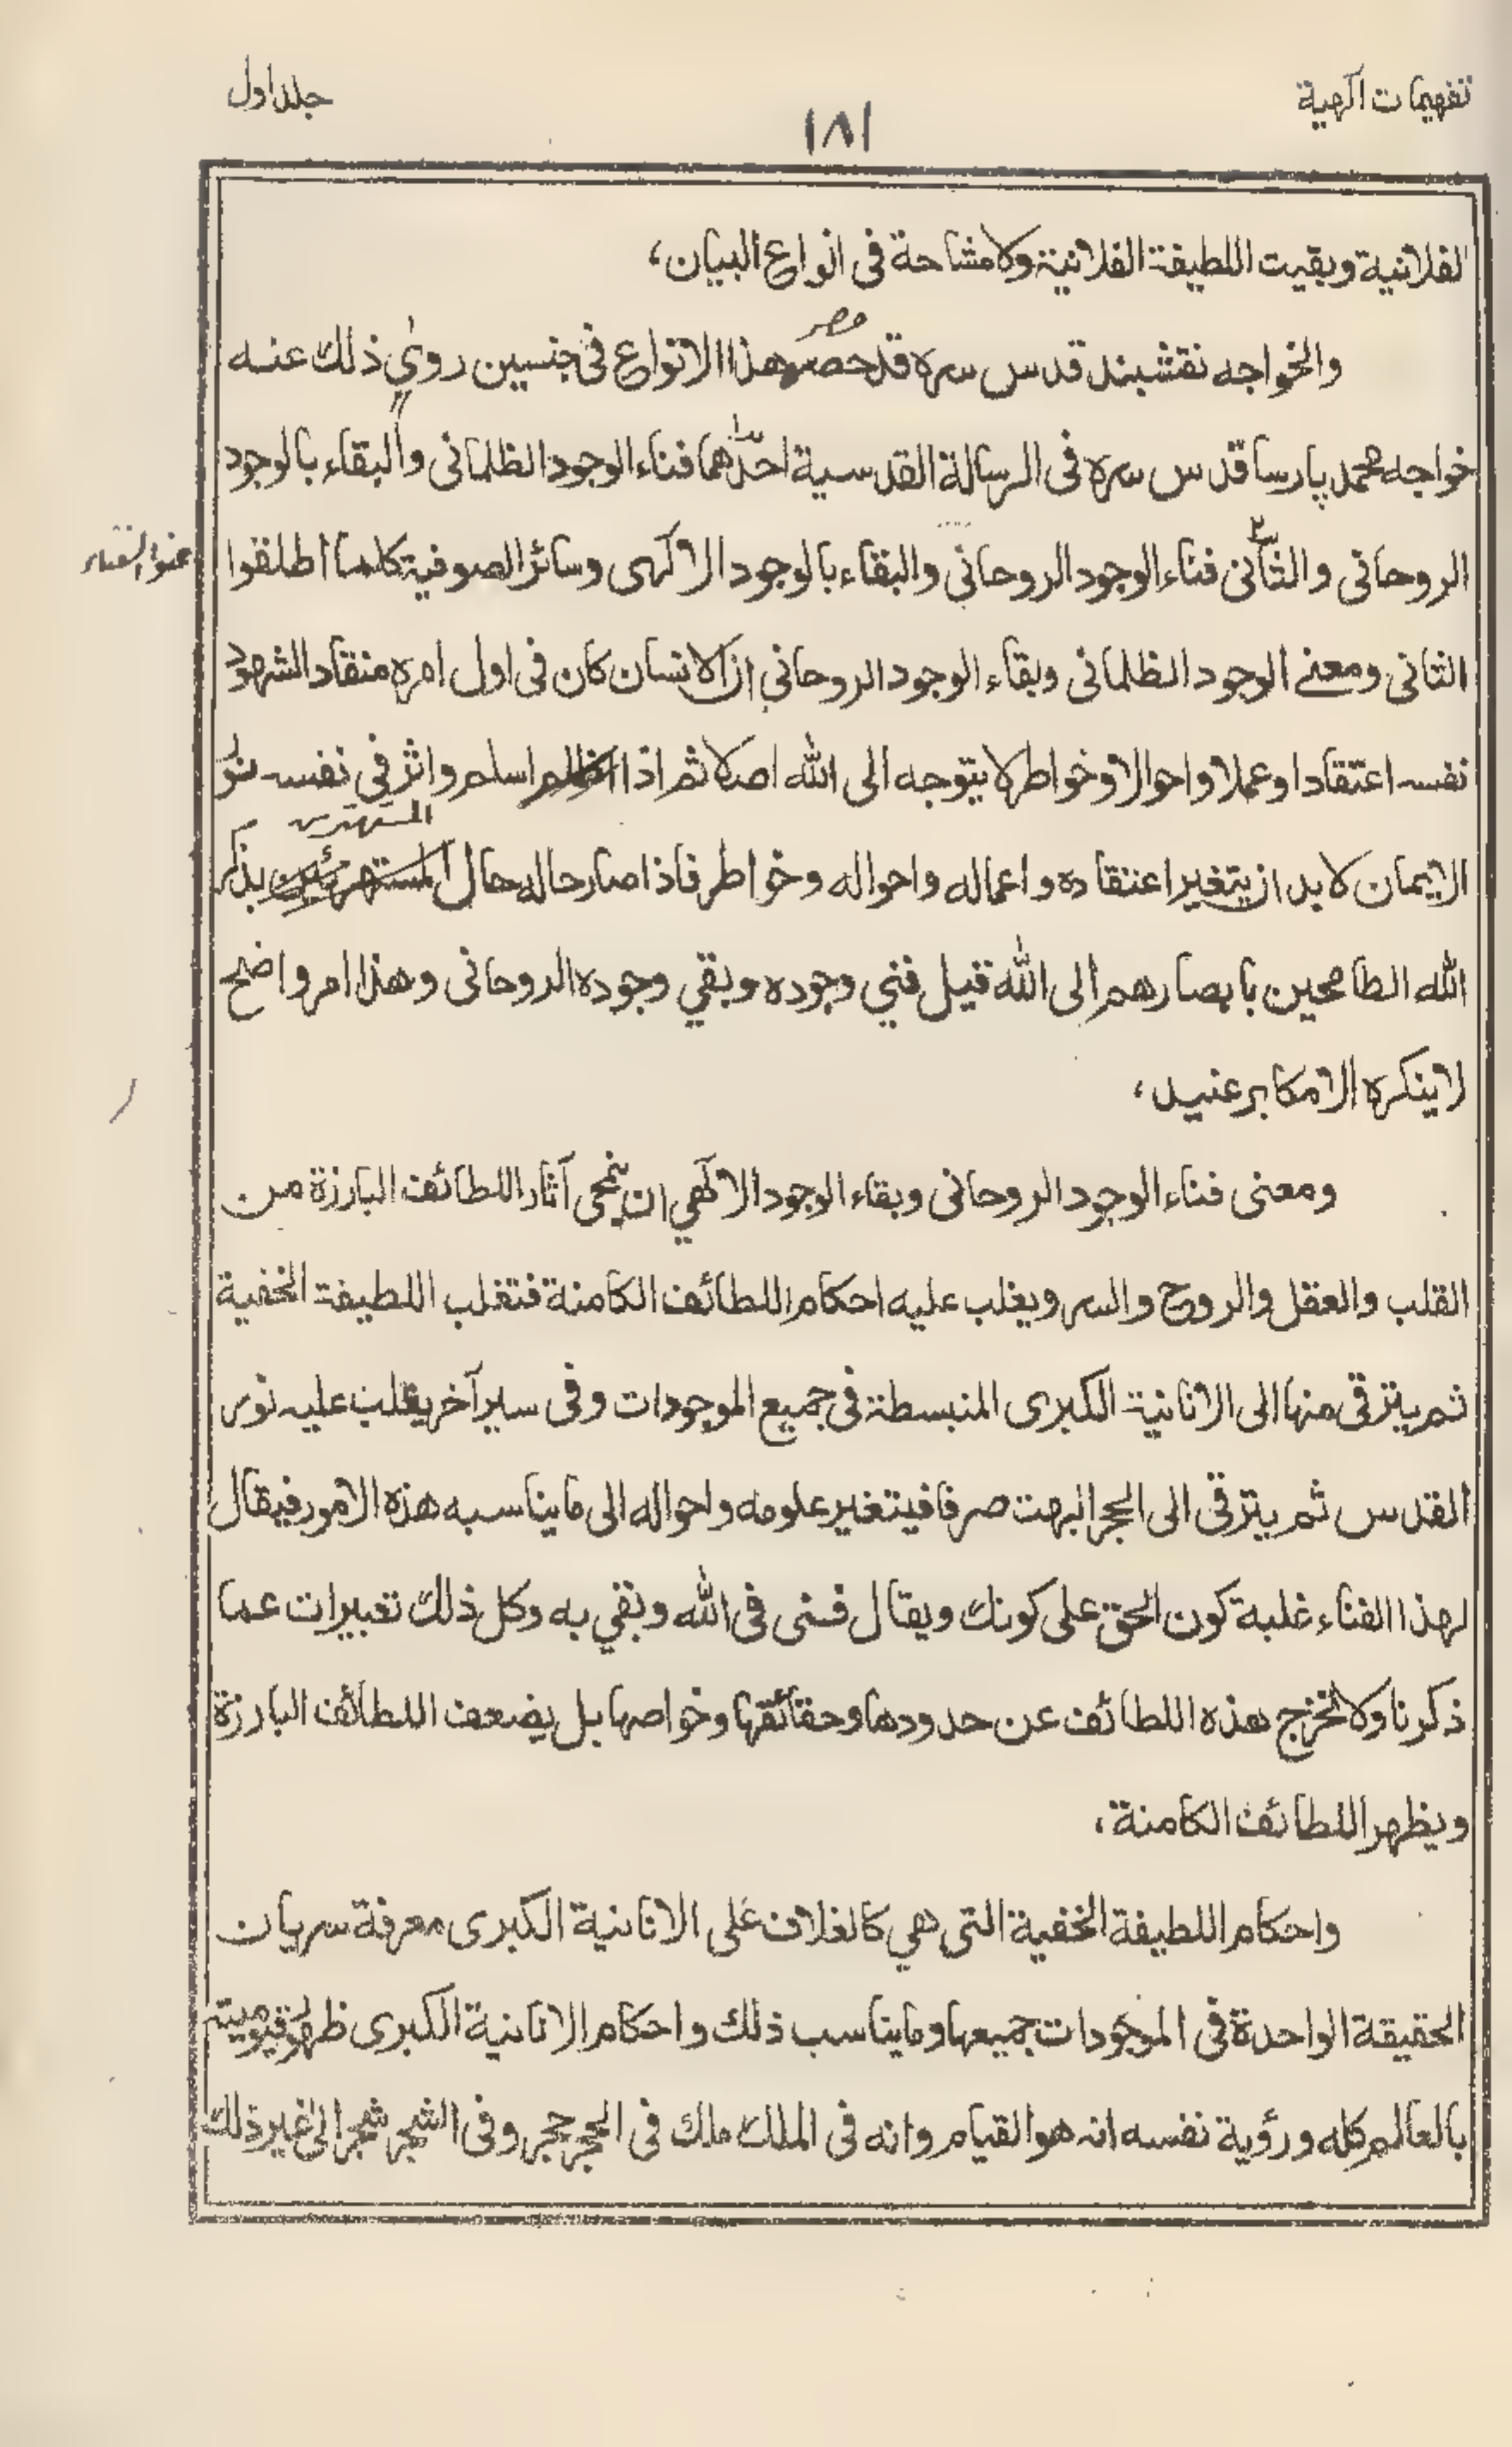 تفهيمات آلهية
١٨١
جلد اول
الفلانية وبقيت اللطيفة الفلانية ولا مشاحة فى انواع البيان،
حصر
والخواجه نقشبند قدس سره قد حصر هذا الانواع فى جنسين روى ذلك عنه
خواجه محمد پارسا قدس سره فى الرسالة القدسية احدهما فناء الوجود الظلمانى والبقاء بالوجود
الروحانى والثانى فناء الوجود الروحانى والبقاء بالوجود الالهى وسائر الصوفية كلما اطلقوا
عنوا الفناء
الثانى ومعنے الوجود الظلمانى وبقاء الوجود الروحاني ان الانسان كان فى اول امره منقاد الشهود
نفسه اعتقادا وعملا واحوالا وخواطر لا يتوجه الى الله اصلا ثم اذا اسلم واثر في نفسه نور
المستهترين
الايمان لا بد ان يتغير اعتقاده واعماله واحواله وخواطر فاذا صار حاله حال المستهزئين بذكر
الله الطامحين بابصارهم الى الله قيل فني وجوده وبقي وجوده الروحانى وهذا امر واضح
لا ينكره الا مكابر عنيد،
ومعنى فناء الوجود الروحانى وبقاء الوجود الالهي ان ينمحى آثار اللطائف البارزة من
القلب والعقل والروح والسر ويغلب عليه احكام اللطائف الكامنة فتغلب اللطيفة الخفية
ثم يترقى منها الى الانانية الكبرى المنبسطة فى جميع الموجودات وفى سير آخر يغلب عليه نور
القدس ثم يترقى الى الحجر البهت صرفا فيتغير علومه واحواله الى ما يناسبه هذه الامور فيقال
لهذا الفناء غلبة كون الحق على كونك ويقال فنى فى الله وبقي به وكل ذلك تعبيرات عما
ذكرنا ولا تخرج هذه اللطائف عن حدودها وحقائقها وخواصها بل يضعف اللطائف البارزة
ويظهر اللطائف الكامنة،
واحكام اللطيفة الخفية التى هي كالغلاف على الانانية الكبرى معرفة سريان
الحقيقة الواحدة فى الموجودات جميعها وما يناسب ذلك واحكام الانانية الكبرى ظهور قيوميته
بالعالم كله ورؤية نفسه انه هو القيام وانه فى الملك ملك فى الحجر حجر وفى الشجر شجر الى غير ذلك